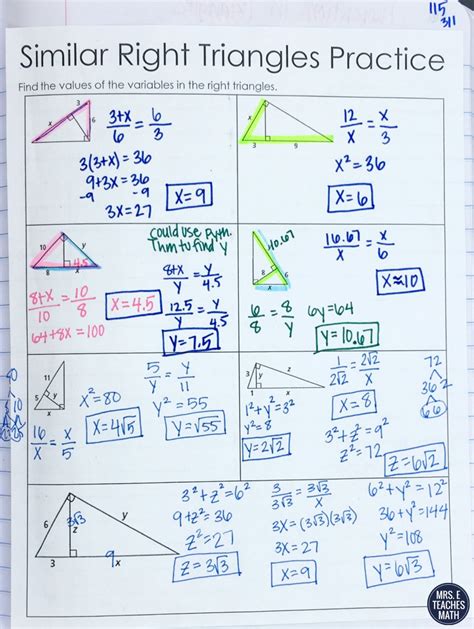 115
311
Similar Right Triangles Practice
Find the values of the variables in the right triangles.
3
x
6
3+x/6 = 6/3
3(3+x) = 36
9+3x = 36
-9 -9
3x = 27
x=9
x
3
9
12/x = x/3
x² = 36
x=6
10
y
8
x
4.5
could use Pyth.
Thm to find y
8+x/10 = 10/8
64+8x = 100
x=4.5
8+x/y = y/4.5
12.5/y = y/4.5
y=7.5
10.67
8
6
x
16.67/x = x/6
x≈10
6/8 = 8/y
6y=64
y=10.67
11
5
y
x
80
10
16/x = x/5
x²=80
x=4√5
5/y = y/11
y² = 55
y=√55
3
y
z
1
x
1/2√2 = 2√2/x
x=8
1²+y²=3²
y²=8
y=2√2
3²+z²=9²
z²=72
z=6√2
72
36 2
6 6
6
3√3
z
y
3
9
x
3²+z²=6²
9+z²=36
z²=27
z=3√3
3/3√3 = 3√3/x
3x=(3√3)(3√3)
3x=27
x=9
6²+y²=12²
36+y²=144
y²=108
y=6√3
MRS. E
TEACHES
MATH